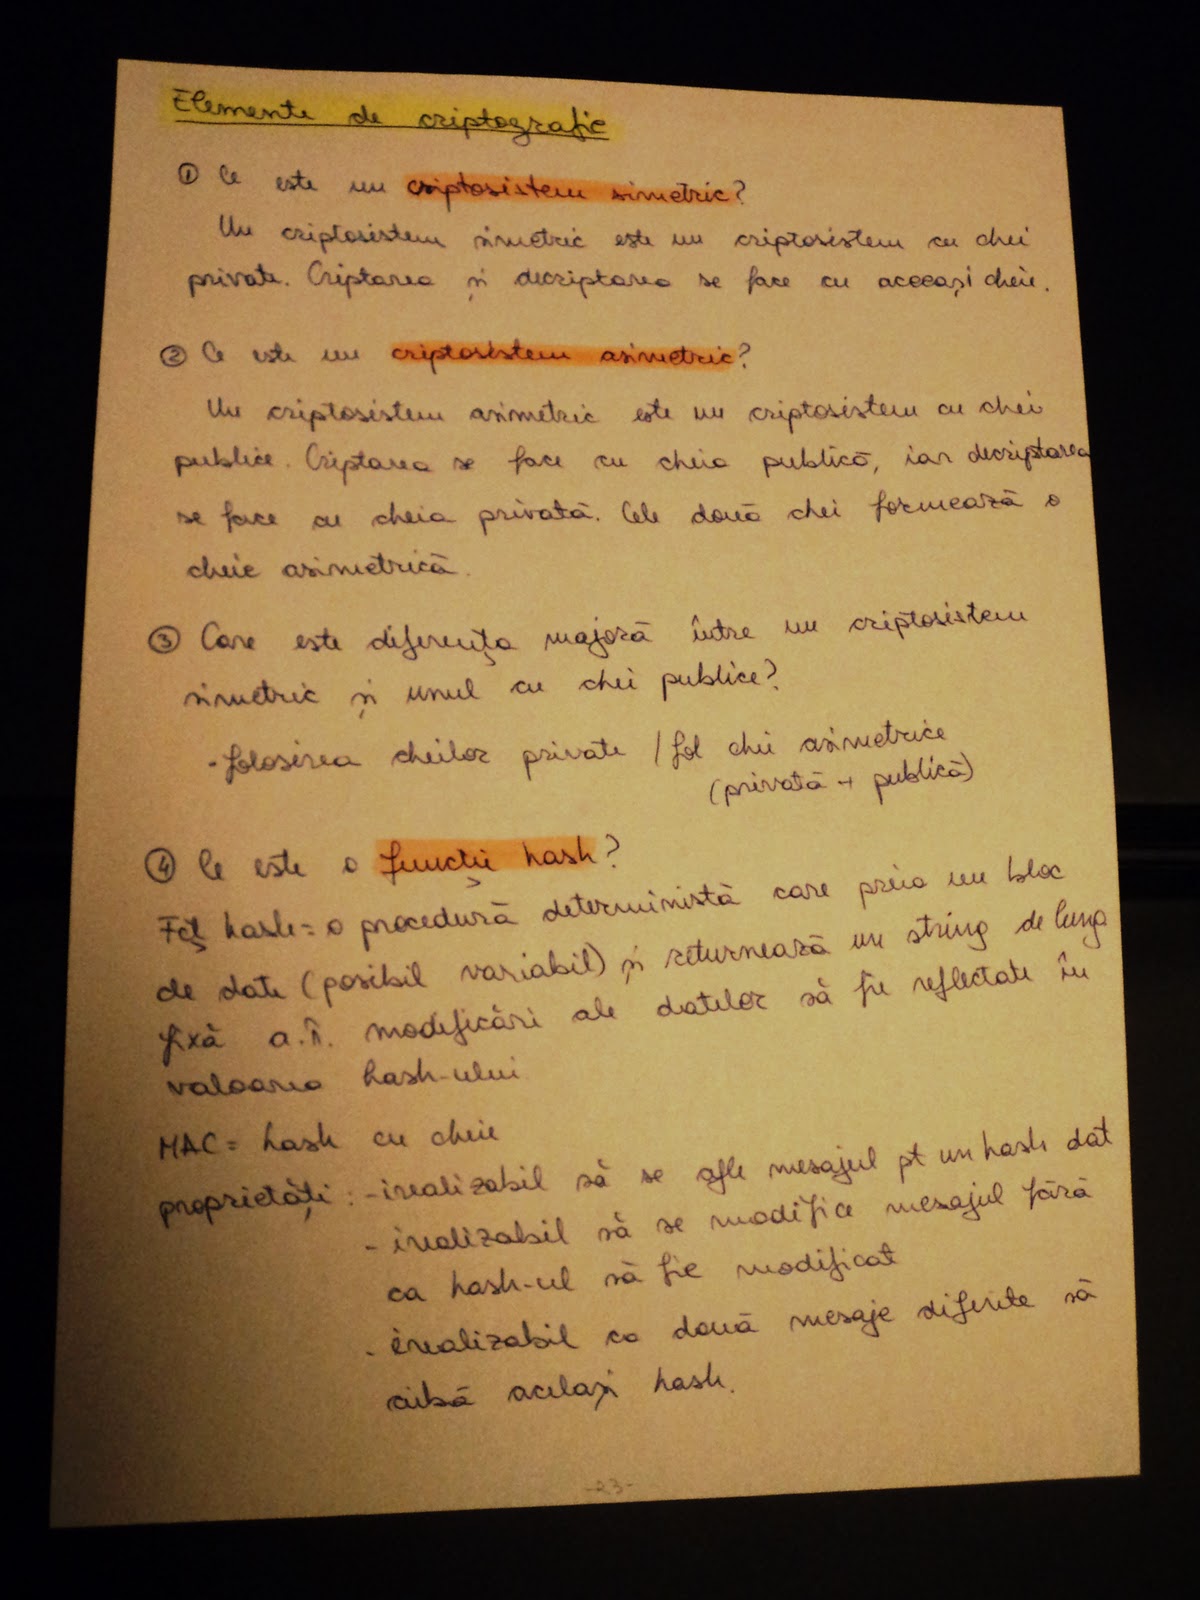 Elemente de criptografie
① Ce este un criptosistem simetric?
Un criptosistem simetric este un criptosistem cu chei
private. Criptarea și decriptarea se face cu aceeași cheie.
② Ce este un criptosistem asimetric?
Un criptosistem asimetric este un criptosistem cu chei
publice. Criptarea se face cu cheia publică, iar decriptarea
se face cu cheia privată. Cele două chei formează o
cheie asimetrică.
③ Care este diferența majoră între un criptosistem
simetric și unul cu chei publice?
- folosirea cheilor private / fol chei asimetrice
(privată + publică)
④ Ce este o funcție hash?
Fcț hash = o procedură deterministă care preia un bloc
de date (posibil variabil) și returnează un string de lung
fixă a.î. modificări ale datelor să fie reflectate în
valoarea hash-ului
MAC = hash cu cheie
proprietăți: - irealizabil să se afle mesajul pt un hash dat
- irealizabil să se modifice mesajul fără
ca hash-ul să fie modificat
- irealizabil ca două mesaje diferite să
aibă același hash.
-23-